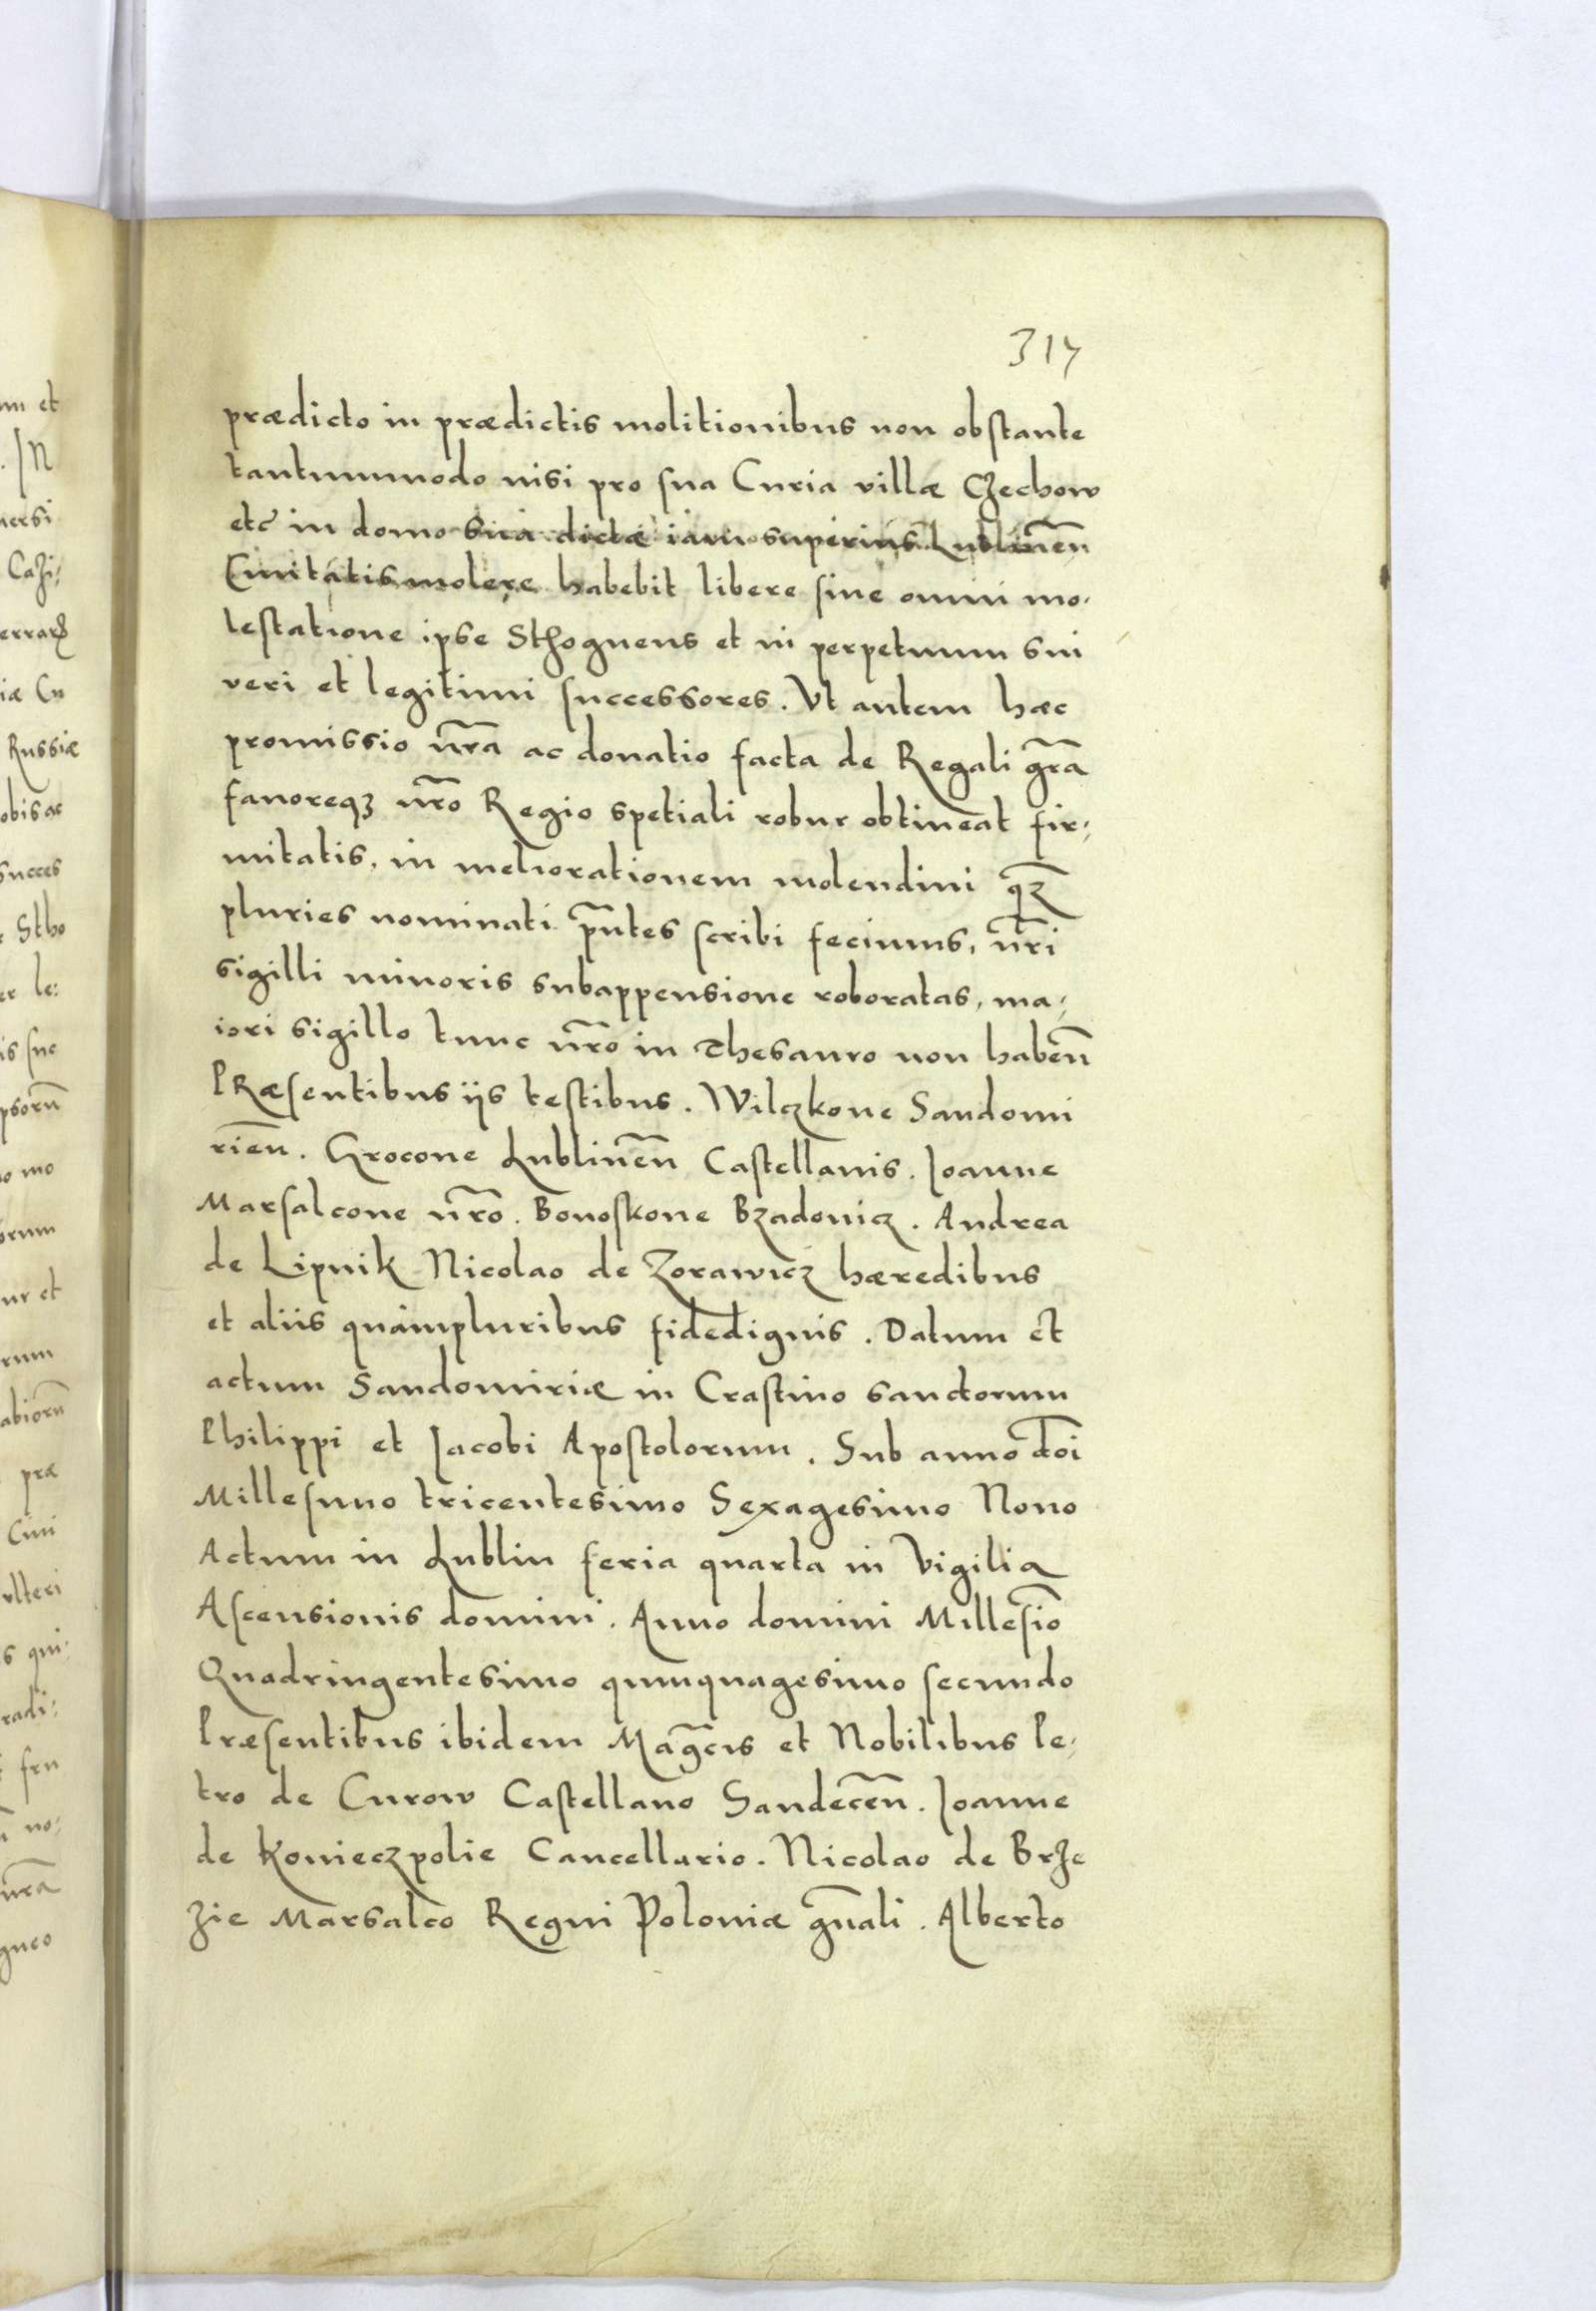 317
prædicto in prædictis molitionibus non obstante
tantummodo nisi pro sua Curia villæ Czechow
etc̃ in domo sua dictæ iam superius Lublineñ
Ciuitatis molere habebit libere sine omni mo-
lestatione ipse Sthogneus et in perpetuum sui
veri et legitimi successores. Vt autem hæc
promissio nr̃a ac donatio facta de Regali gr̃a
fauoreqȝ nr̃o Regio spetiali robur obtineat fir-
mitatis, in meliorationem molendini
pluries nominati pñtes scribi fecimus, nr̃i
sigilli minoris subappensione roboratas, ma-
iori sigillo tunc nr̃o in Thesauro non habeñ
PRæsentibus iis testibus. Wilczkone Sandomi
rieñ. Grocone Lublineñ Castellanis. Ioanne
Marsalcone nr̃o. Bonoskone Bzadouicz. Andrea
de Lipnik Nicolao de Zorawicz hæredibus
et aliis quàmpluribus fidedignis. Datum et
actum Sandomiriæ in Crastino sanctorum
Philippi et Iacobi Apostolorum. Sub anno dñi
Millesimo tricentesimo Sexagesimo Nono
Actum in Lublin feria quarta in Vigilia
Ascensionis domini. Anno domini Millesĩo
Quadringentesimo quinquagesimo secundo
Præsentibus ibidem Mag̃cis et Nobilibus Pe-
tro de Curow Castellano Sandeceñ. Ioanne
de Konieczpolie Cancellario. Nicolao de Brze
zie Marsalco Regni Poloniæ gñali. Alberto